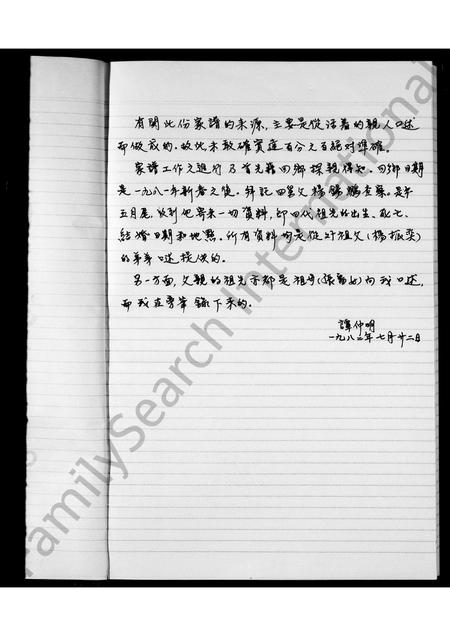 有關此份家譜的來源，主要是從活着的親人口述
而做成的．故此未敢確實達百分之百絕對準確。
家譜工作之進行乃首先藉回鄉探親得知．回鄉日期
是一九八一年新春之後．拜託四舅父楊錦鵬查察。是年
五月尾，收到他寄來一切資料，即四代祖先的出生、死亡、
結婚日期和地點。所有資料均是從外祖父（楊振奕）
的弟弟口述提供的。
另一方面，父親的祖先亦都是祖母（張勤女）向我口述，
而我在旁筆錄下來的。
譚仲明
一九八二年七月廿二日
FamilySearch International